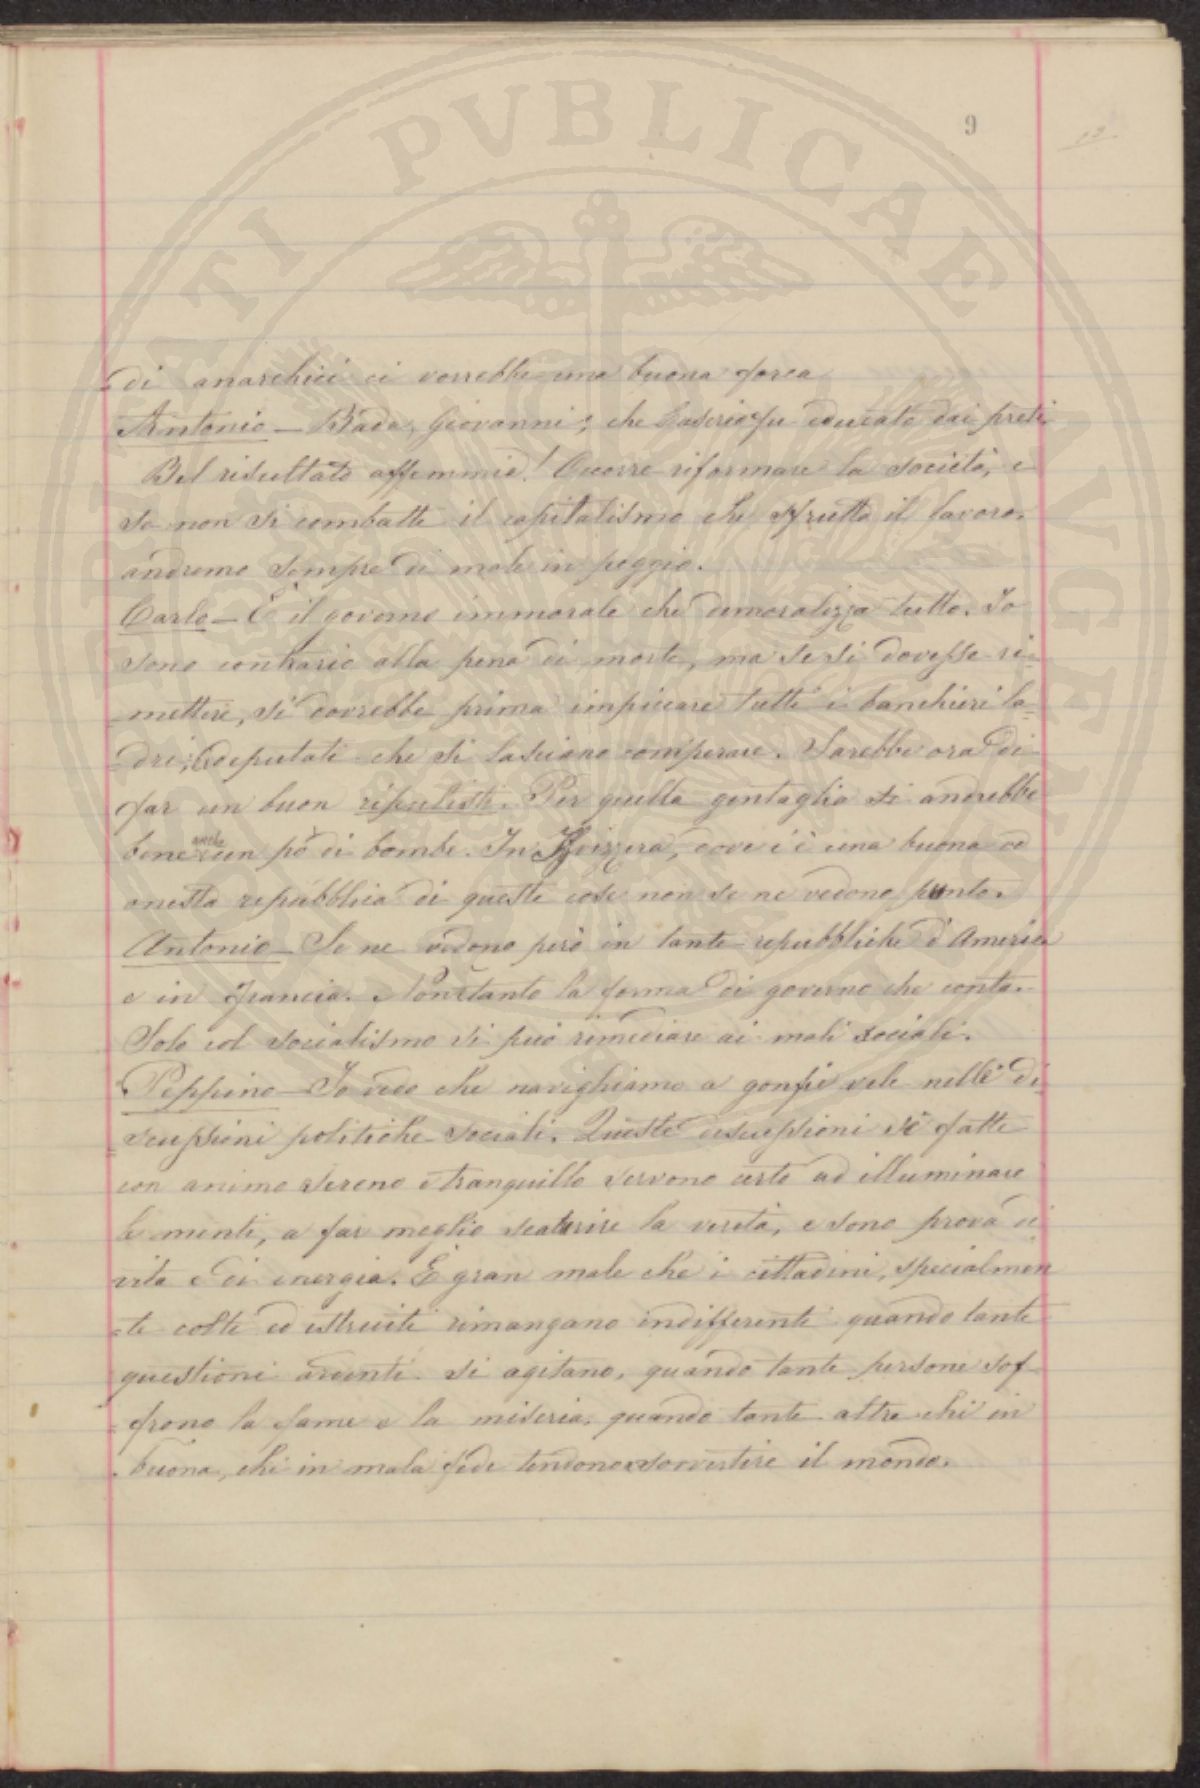 9
13
di anarchici ci vorrebbe una buona forca
Antonio — Bada, Giovanni, che Caserio fu educato dai preti.
Bel risultato affemmia! Occorre riformare la società, e
se non si combatte il capitalismo che sfrutta il lavoro,
andremo sempre di male in peggio.
Carlo — È il governo immorale che demoralizza tutto. Io
sono contrario alla pena di morte, ma se si dovesse ri-
mettere, si dovrebbe prima impiccare tutti i banchieri la-
dri, i deputati che si lasciano comperare. Sarebbe ora di
far un buon ripulisti. Per quella gentaglia si andrebbe
bene anche un pò di bombe. In Svizzera, dove c'è una buona ed
onesta repubblica di queste cose non se ne vedono punto.
Antonio — Se ne vedono però in tante repubbliche d'America
e in Francia. Non è tanto la forma di governo che conta.
Solo col socialismo si può rimediare ai mali sociali.
Peppino — Io vedo che navighiamo a gonfie vele nelle di-
scussioni politiche-sociali. Queste discussioni se fatte
con animo sereno e tranquillo servono certo ad illuminare
le menti, a far meglio scaturire la verità, e sono prova di
vita e di energia. È gran male che i cittadini, specialmen
te colti ed istruiti rimangano indifferenti quando tante
questioni ardenti si agitano, quando tante persone sof-
frono la fame e la miseria, quando tante altre chi in
buona, chi in mala fede tendono a sovvertire il mondo.
PVBLICAE